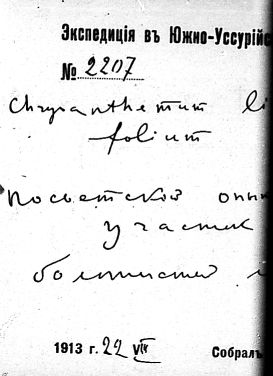 Экспедиція въ Южно-Уссурійс
№ 2207
Chrysanthemum li
folium
Посьетской опы
участок
болотистый
1913 г. 22 VII
Собралъ